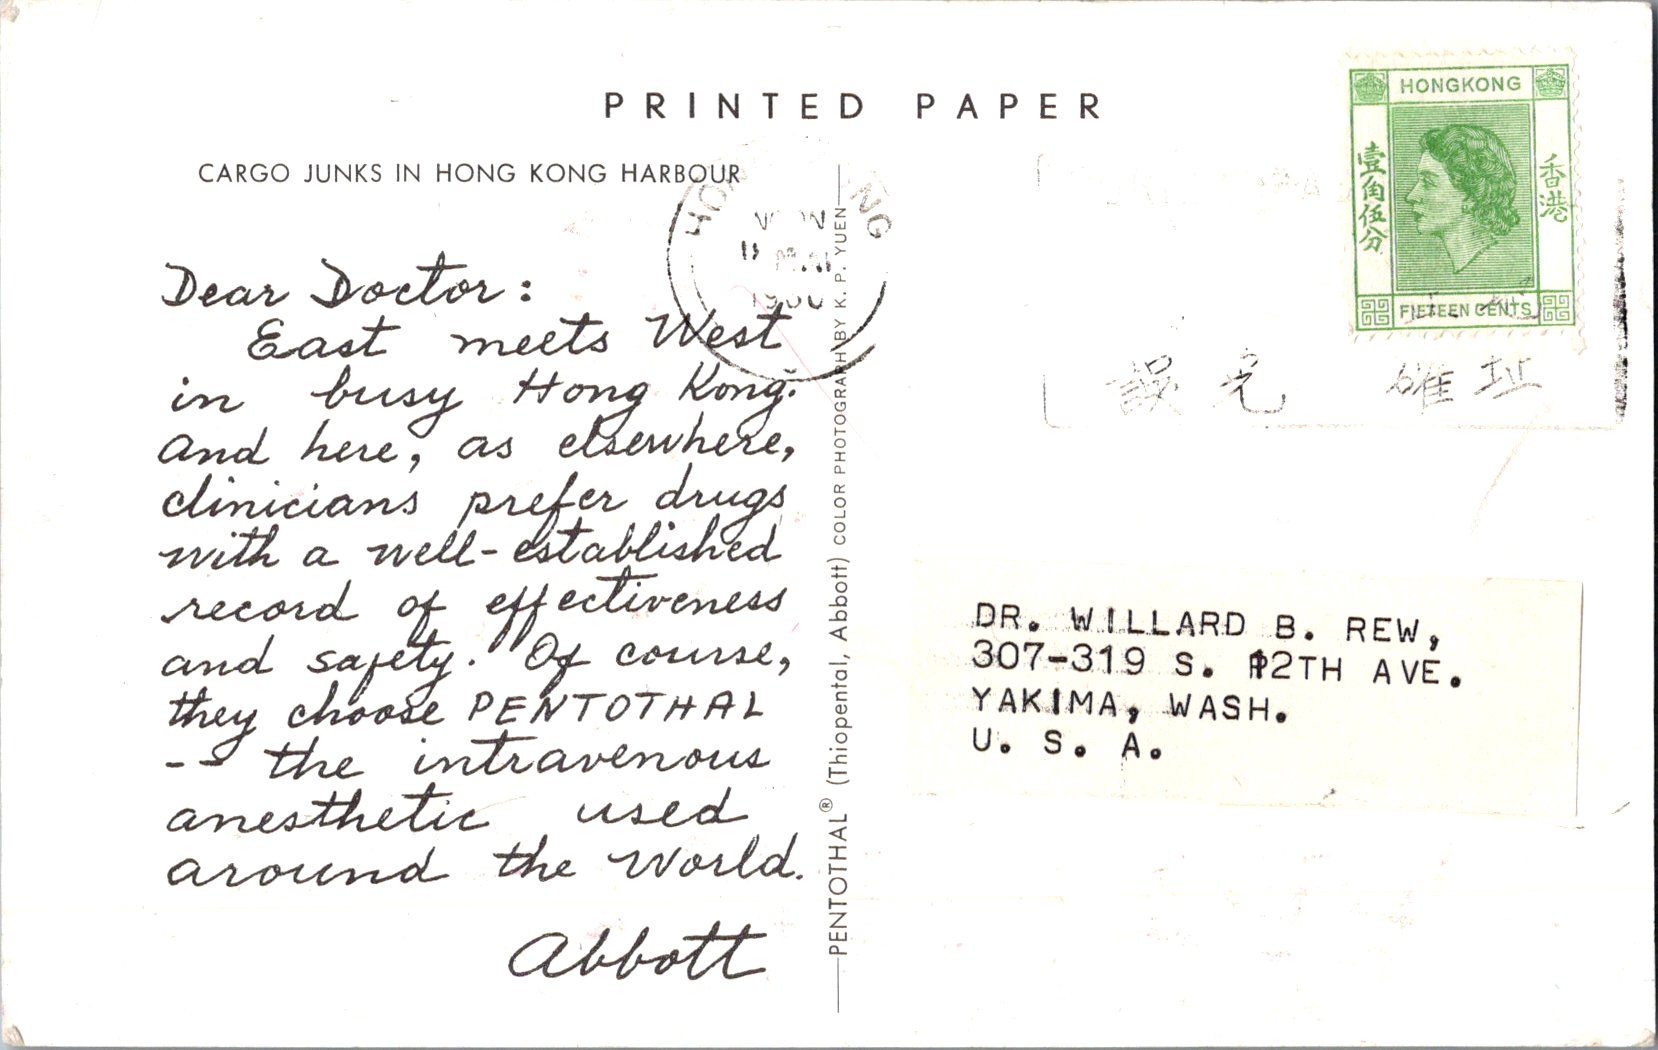 PRINTED PAPER
CARGO JUNKS IN HONG KONG HARBOUR
HONGKONG
壹角伍分
香港
FIFTEEN CENTS
Dear Doctor:
East meets West
in busy Hong Kong.
And here, as elsewhere,
clinicians prefer drugs
with a well-established
record of effectiveness
and safety. Of course,
they choose PENTOTHAL
-- the intravenous
anesthetic used
around the World.
Abbott
PENTOTHAL® (Thiopental, Abbott) COLOR PHOTOGRAPH BY K. P. YUEN
確址
DR. WILLARD B. REW,
307-319 S. 12TH AVE.
YAKIMA, WASH.
U. S. A.